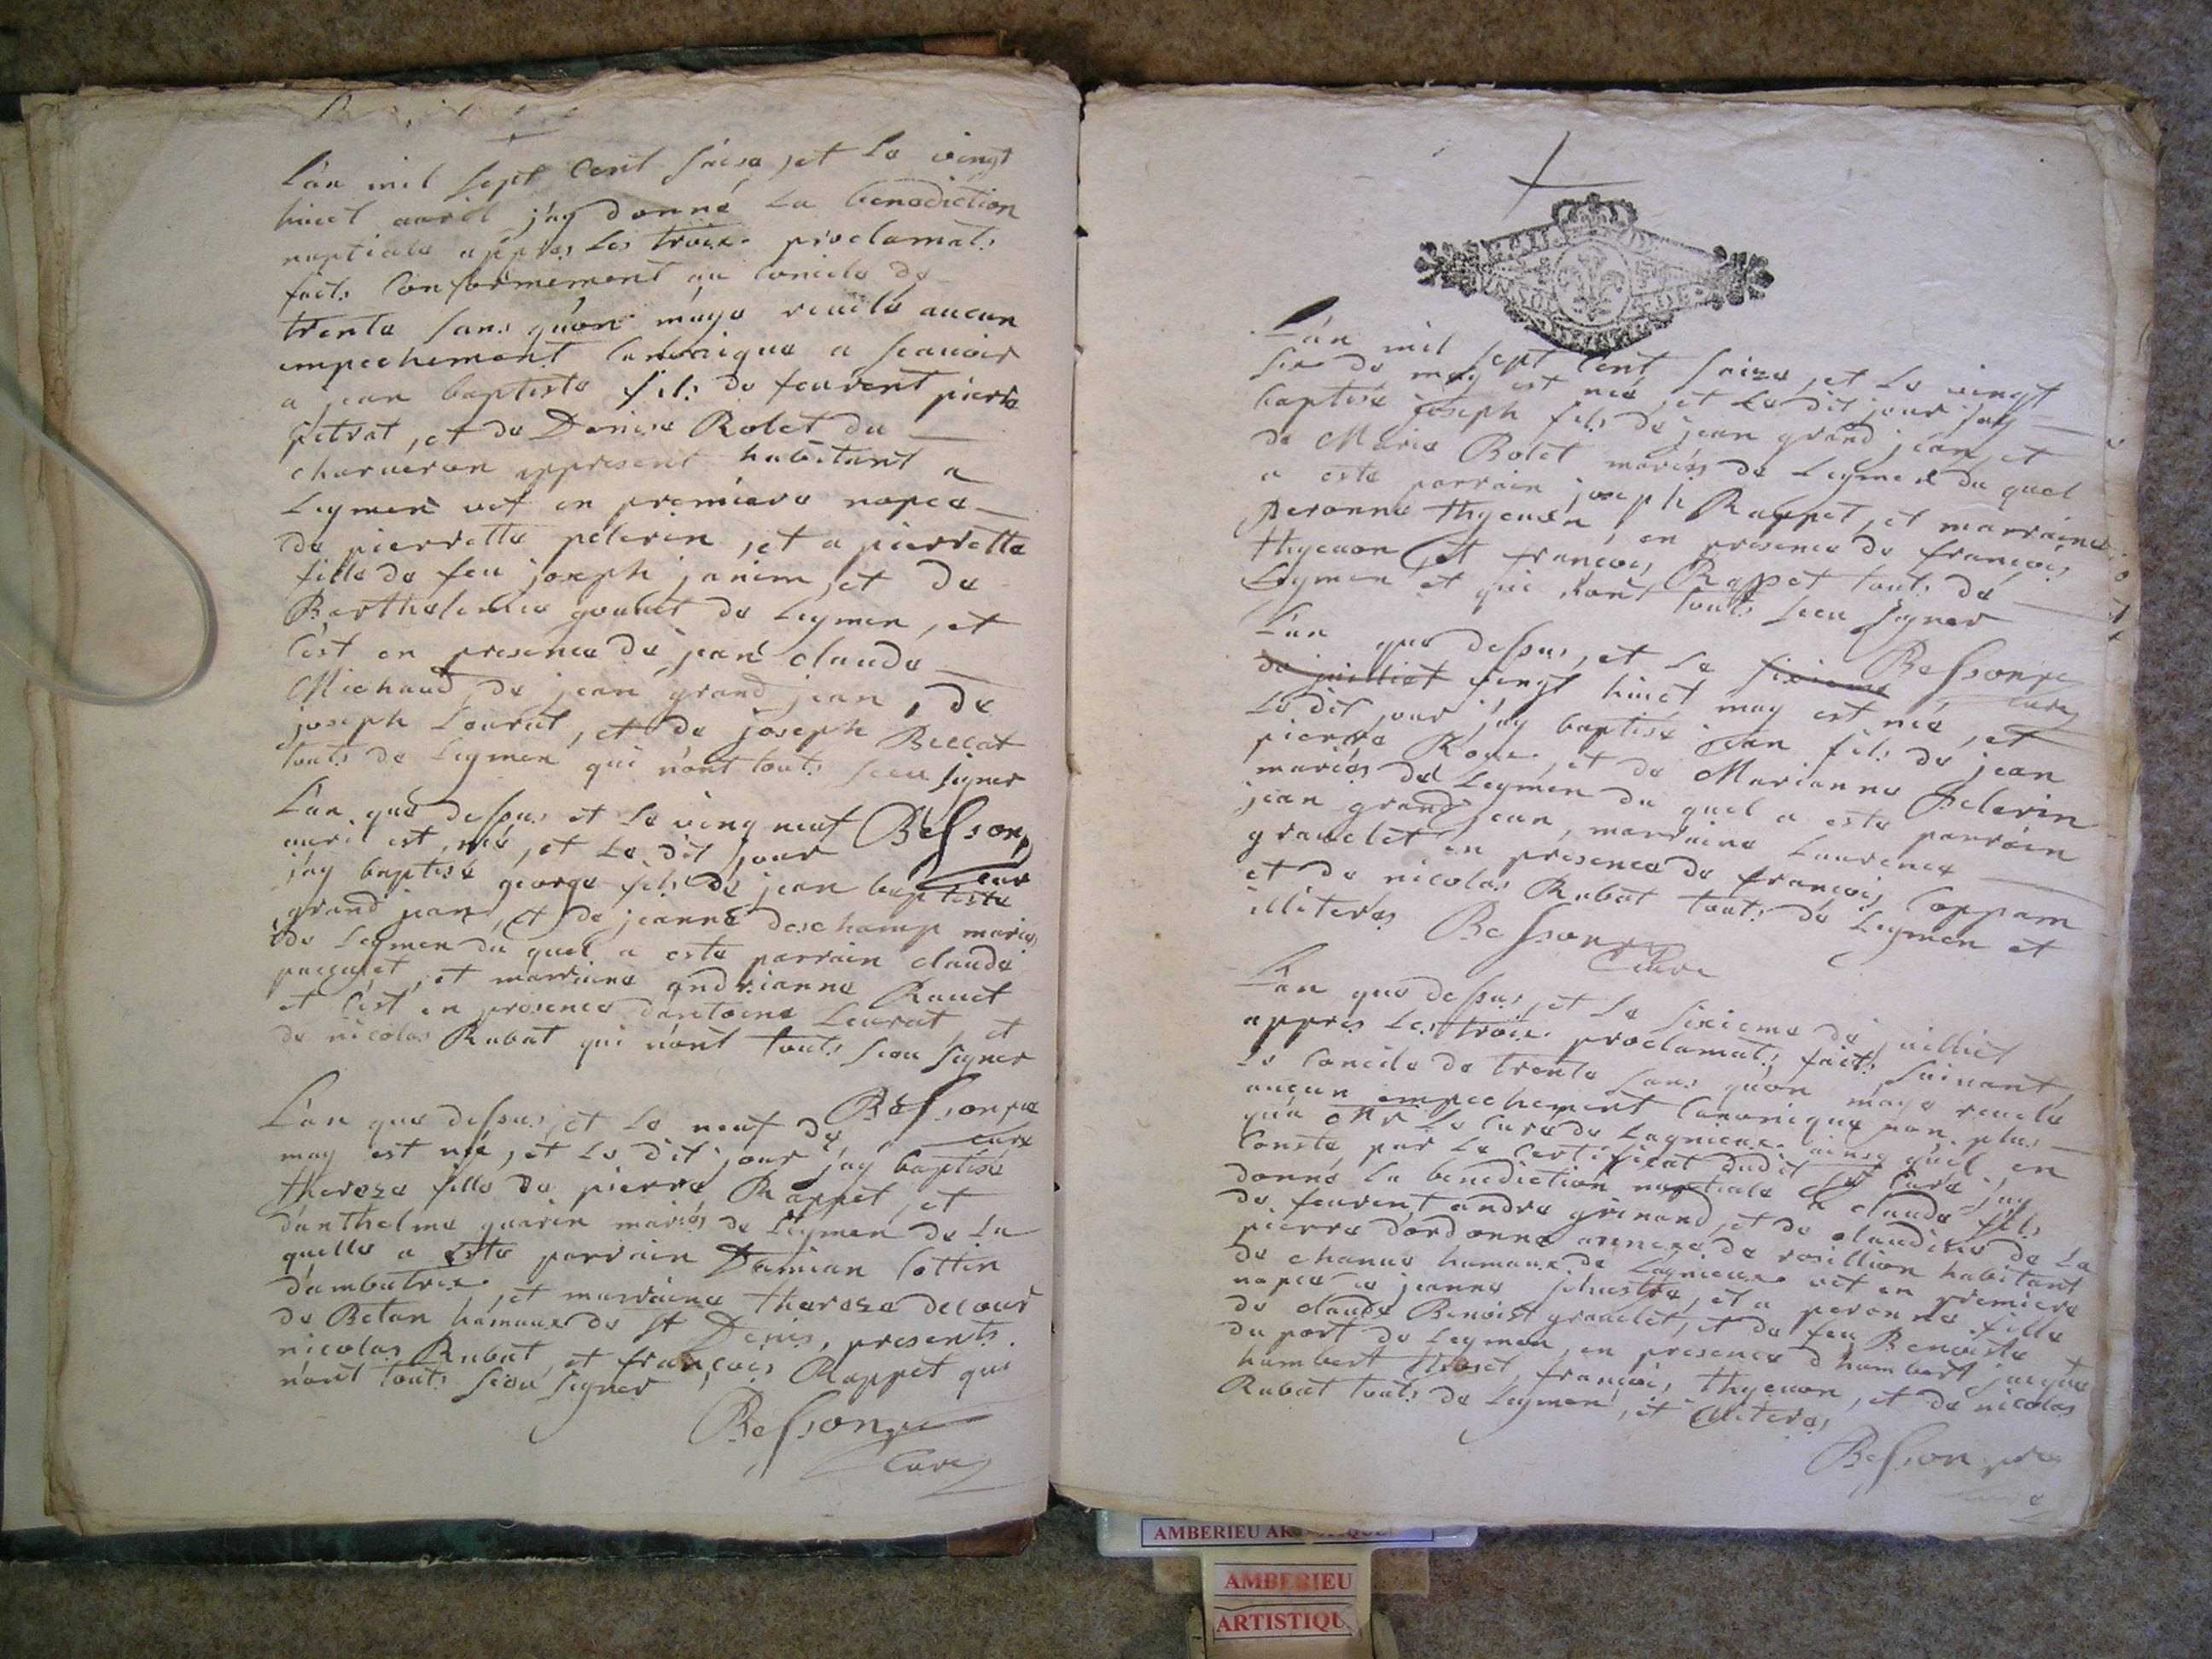 L'an mil sept cent saise, et le vingt
huict avril j'ay donné la benediction
nuptiale appres les troix proclamats
faits conformement au concile de
trente sans qu'on m'aye revelé aucun
empechement canonique a scauoir
a jean baptiste fils de feu pierre
petrat, et de Denise Rolet du
charveron appresent habitant a
Leymen vef en premiere nopce
de pierrette pelerin, et a pierrette
fille de feu joseph janim, et de
Barthelemie goulet de Leymen, et
c'est en presence de jean claude
Michaud, de jean grand jean, de
joseph Leurat, et de joseph Beccat
touts de Leymen qui n'ont touts sceu signer
L'an que dessus et le ving neuf Besson
avril est née, et le dit jour
j'ay baptisé george fils de jean baptiste
grand jean, et de jeanne deschamp mariés
de Leymen du quel a este parrain claude
et marraine andrianne Rauet
et c'est en presence d'antoine Leurat, et
de nicolas Rubat qui n'ont touts sceu signer
Besson pre
curé
L'an que dessus, et le neuf de
may est né, et le dit jour j'ay baptisé
thereze fille de pierre Rappet, et
d'anthelme guarin mariés de Leymen de la
quelle a este parrain Damian Cottin
d'ambutrix, et marraine thereze delour
de Betan hamaux de St Denis, presents
nicolas Rubat, et françois Rappet qui
n'ont touts sceu signer
Besson pre
Curé
L'an mil sept cent saize, et le vingt
six de may est né, et le dit jour j'ay
baptisé joseph fils de jean grand jean, et
de Marie Bolet mariés de Leymen du quel
a este parrain joseph Rappet, et marraine
peronne thyeuon, en presence de françois
thyeuon et françois Rappet touts de
Leymen et qui n'ont touts sceu signer
Besson pre
curé
L'an que dessus, et le sixieme
de juilliet vingt huict may est né, et
le dit jour j'ay baptisé jean fils de jean
pierre Roux, et de Marianne Pelerin
mariés de Leymen du quel a este parrain
jean grand jean, marraine Laurence
gravelet en presence de françois Coppam
et de nicolas Rubat touts de Leymen et
illiteres Besson pre
Curé
L'an que dessus, et le sixieme de juilliet
appres les troix proclamats faits suivant
le concile de trente sans qu'on m'aye revelé
aucun empechement canonique non plus
qu'a Mr le curé de Lagnieux ainsy qu'il en
conste par le certificat dudit sr curé j'ay
donné la benediction nuptiale a claude fils
de feu andre grinand, et de claudine de La
pierre d'ordonne annexe de rosillion habitant
de chanue hamaux de Lagnieux vef en premiere
nopce de jeanne silvestre, et a peronne fille
de claude Benoist gravelet, et de feu Benoiste
du port de Leymen, en presence d'humbert jacque
humbert françois thyeuon, et de nicolas
Rubat touts de Leymen, et illiteres
Besson pre
curé
AMBERIEU
AMBERIEU
ARTISTIQU